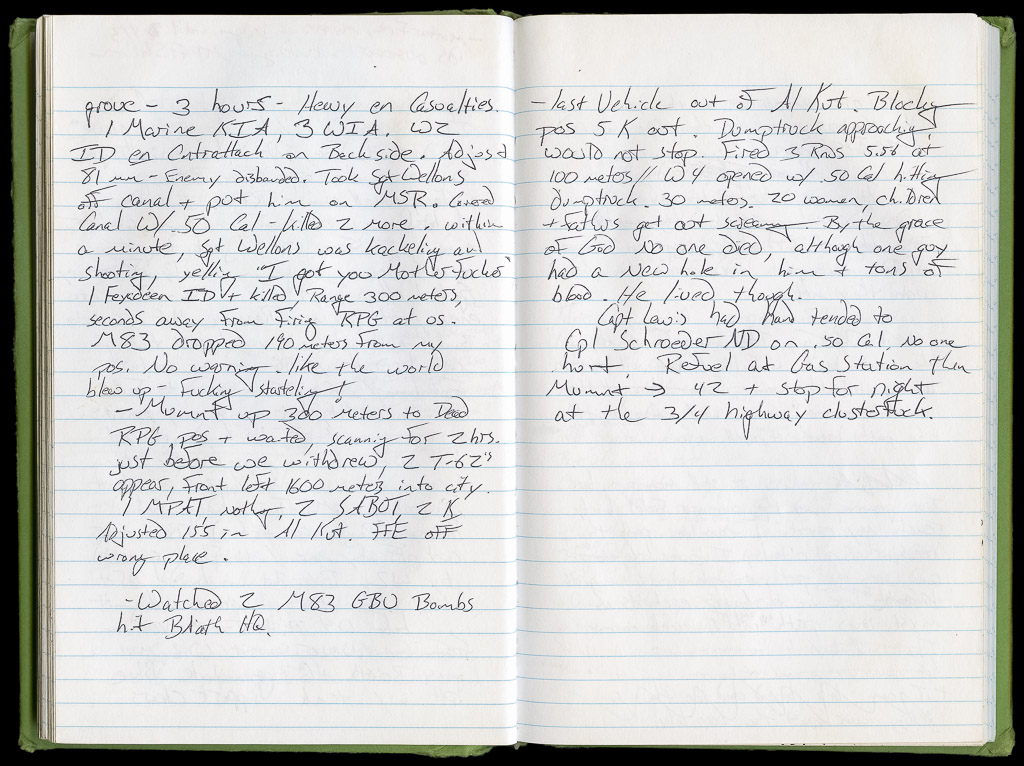 grove - 3 hours - Heavy en Casualties.
1 Marine KIA, 3 WIA. W2
ID en Cntrattack on Backside. Adjust
81 mm - Enemy disbanded. Took Sgt Wellons
off canal + put him on MSR. Covered
Canal W/ .50 Cal - killed 2 more. within
a minute, Sgt Wellons was kackeling and
shooting, yelling "I got you Mother Fucker"
1 Feyedeen ID + killed, Range 300 meters,
seconds away from firing RPG at us.
M83 dropped 190 meters from my
pos. No warning. like the world
blew up - Fucking starteling!
- Mvmnt up 300 meters to Dead
RPG pos + waited, scanning for 2 hrs.
just before we withdrew, 2 T-62's
appear, front left 1600 meters into city.
1 MPAT nothing, 2 SABOT, 2 K
Adjusted 155 in Al Kut. FFE off
wrong place.
- Watched 2 M83 GBU Bombs
hit B'ath HQ.
- last Vehicle out of Al Kut. Blocking
pos 5 K out. Dumptruck approaching,
would not stop. Fired 3 Rnds 5.56 at
100 meters // W4 opened w/ .50 Cal hitting
dumptruck. 30 meters. 20 women, children
+ Fathers get out screaming. By the grace
of God No one died, although one guy
had a New hole in him + tons of
blood. He lived though.
Capt Lewis had Hand tended to
Cpl Schroeder ND on .50 Cal, No one
hurt. Refuel at Gas Station then
Mvmnt → 42 + stop for night
at the 3/4 highway clusterfuck.